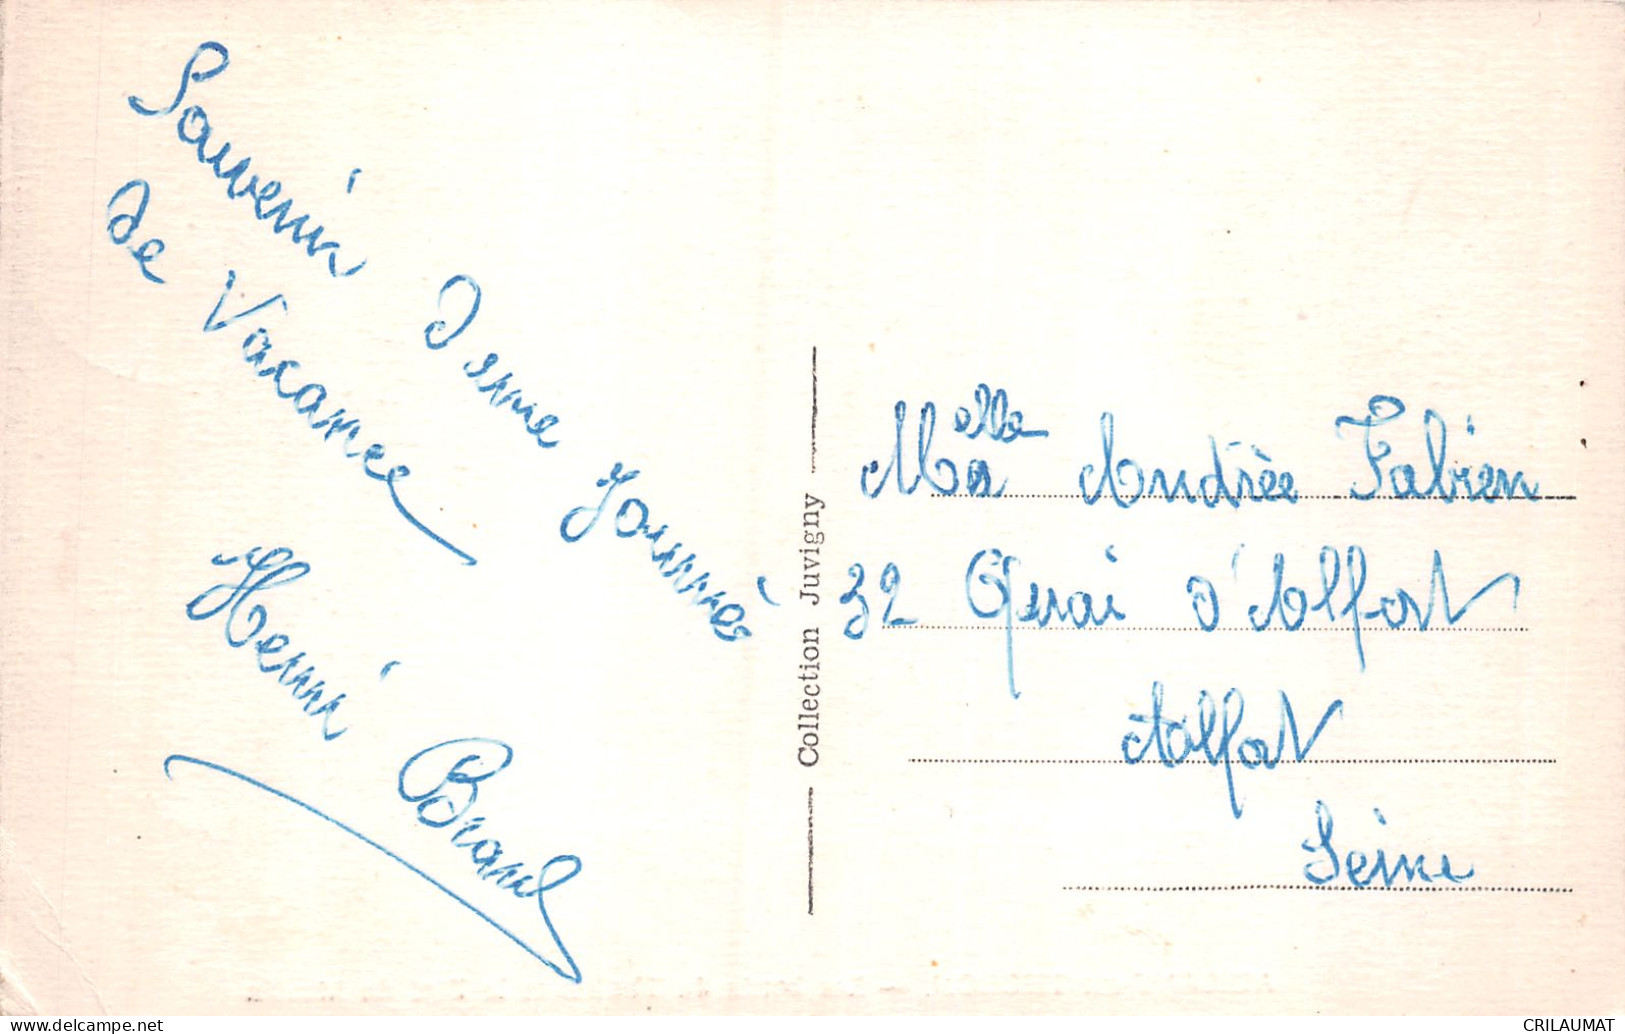 Souvenir d'une Journné
de Vacance
Henri Brand
Collection Juvigny
Melle Andrèe Fabien
32 Quai d'Alfort
Alfort
Seine
CRILAUMAT